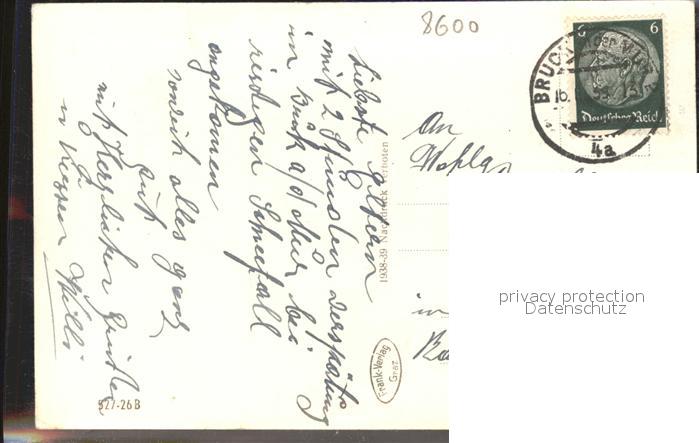 8600
6 6
Deutsches Reich
BRUCK
16.
4a
Liebste Eltern
mit 2 Stunden Verspätung
in Bruk a/d Mur bei
riesigen Schneefall
angekommen
sonst alles ganz
gut
mit herzlichen Grüßen
u Küssen Willi
1938-39 Nachdruck verboten
An
Wohlg
in
Frank-Verlag
Graz
527-26B
privacy protection
Datenschutz